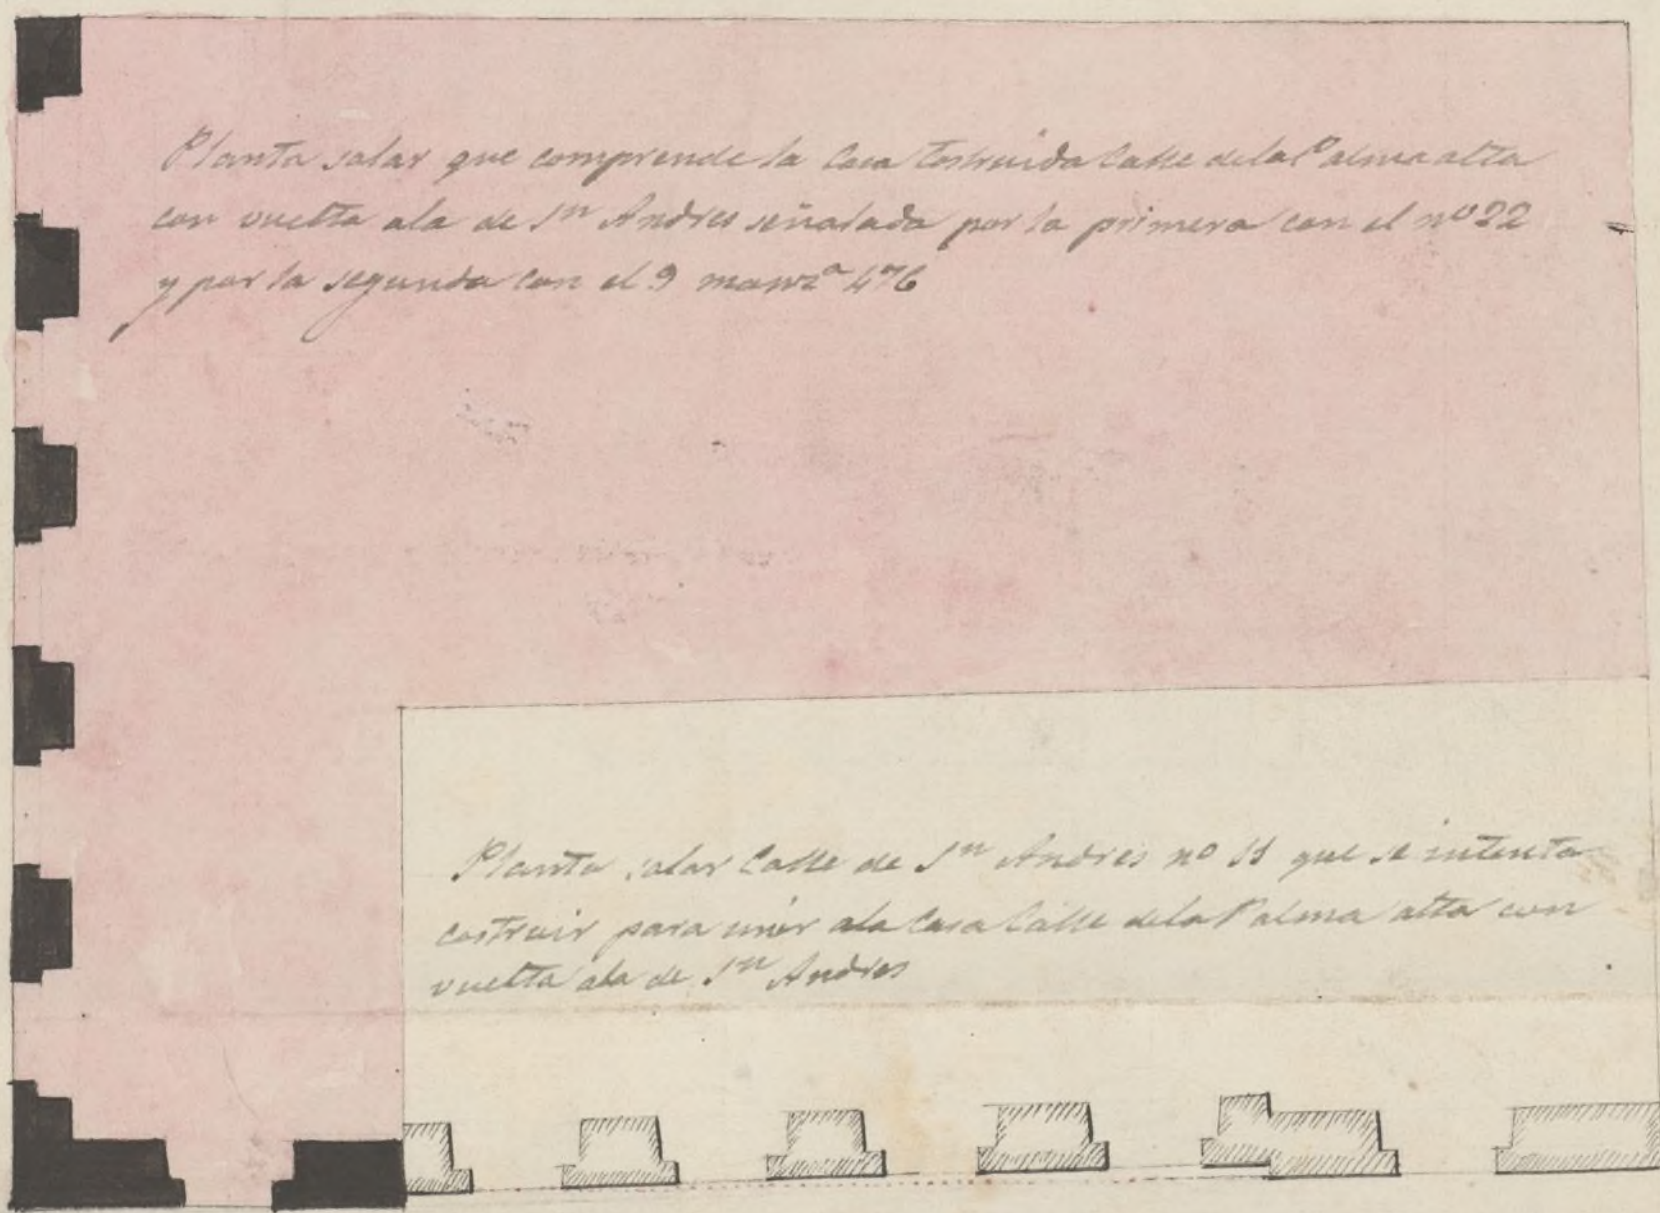 Planta solar que comprende la Casa Costruida Calle de la Palma alta
con vuelta ala de Sn Andres señalada por la primera con el nº 22
y por la segunda con el 9 manzª 476
Planta solar Calle de Sn Andres nº 11 que se intenta
costruir para unir ala Casa Calle de la Palma alta con
vuelta ala de Sn Andres